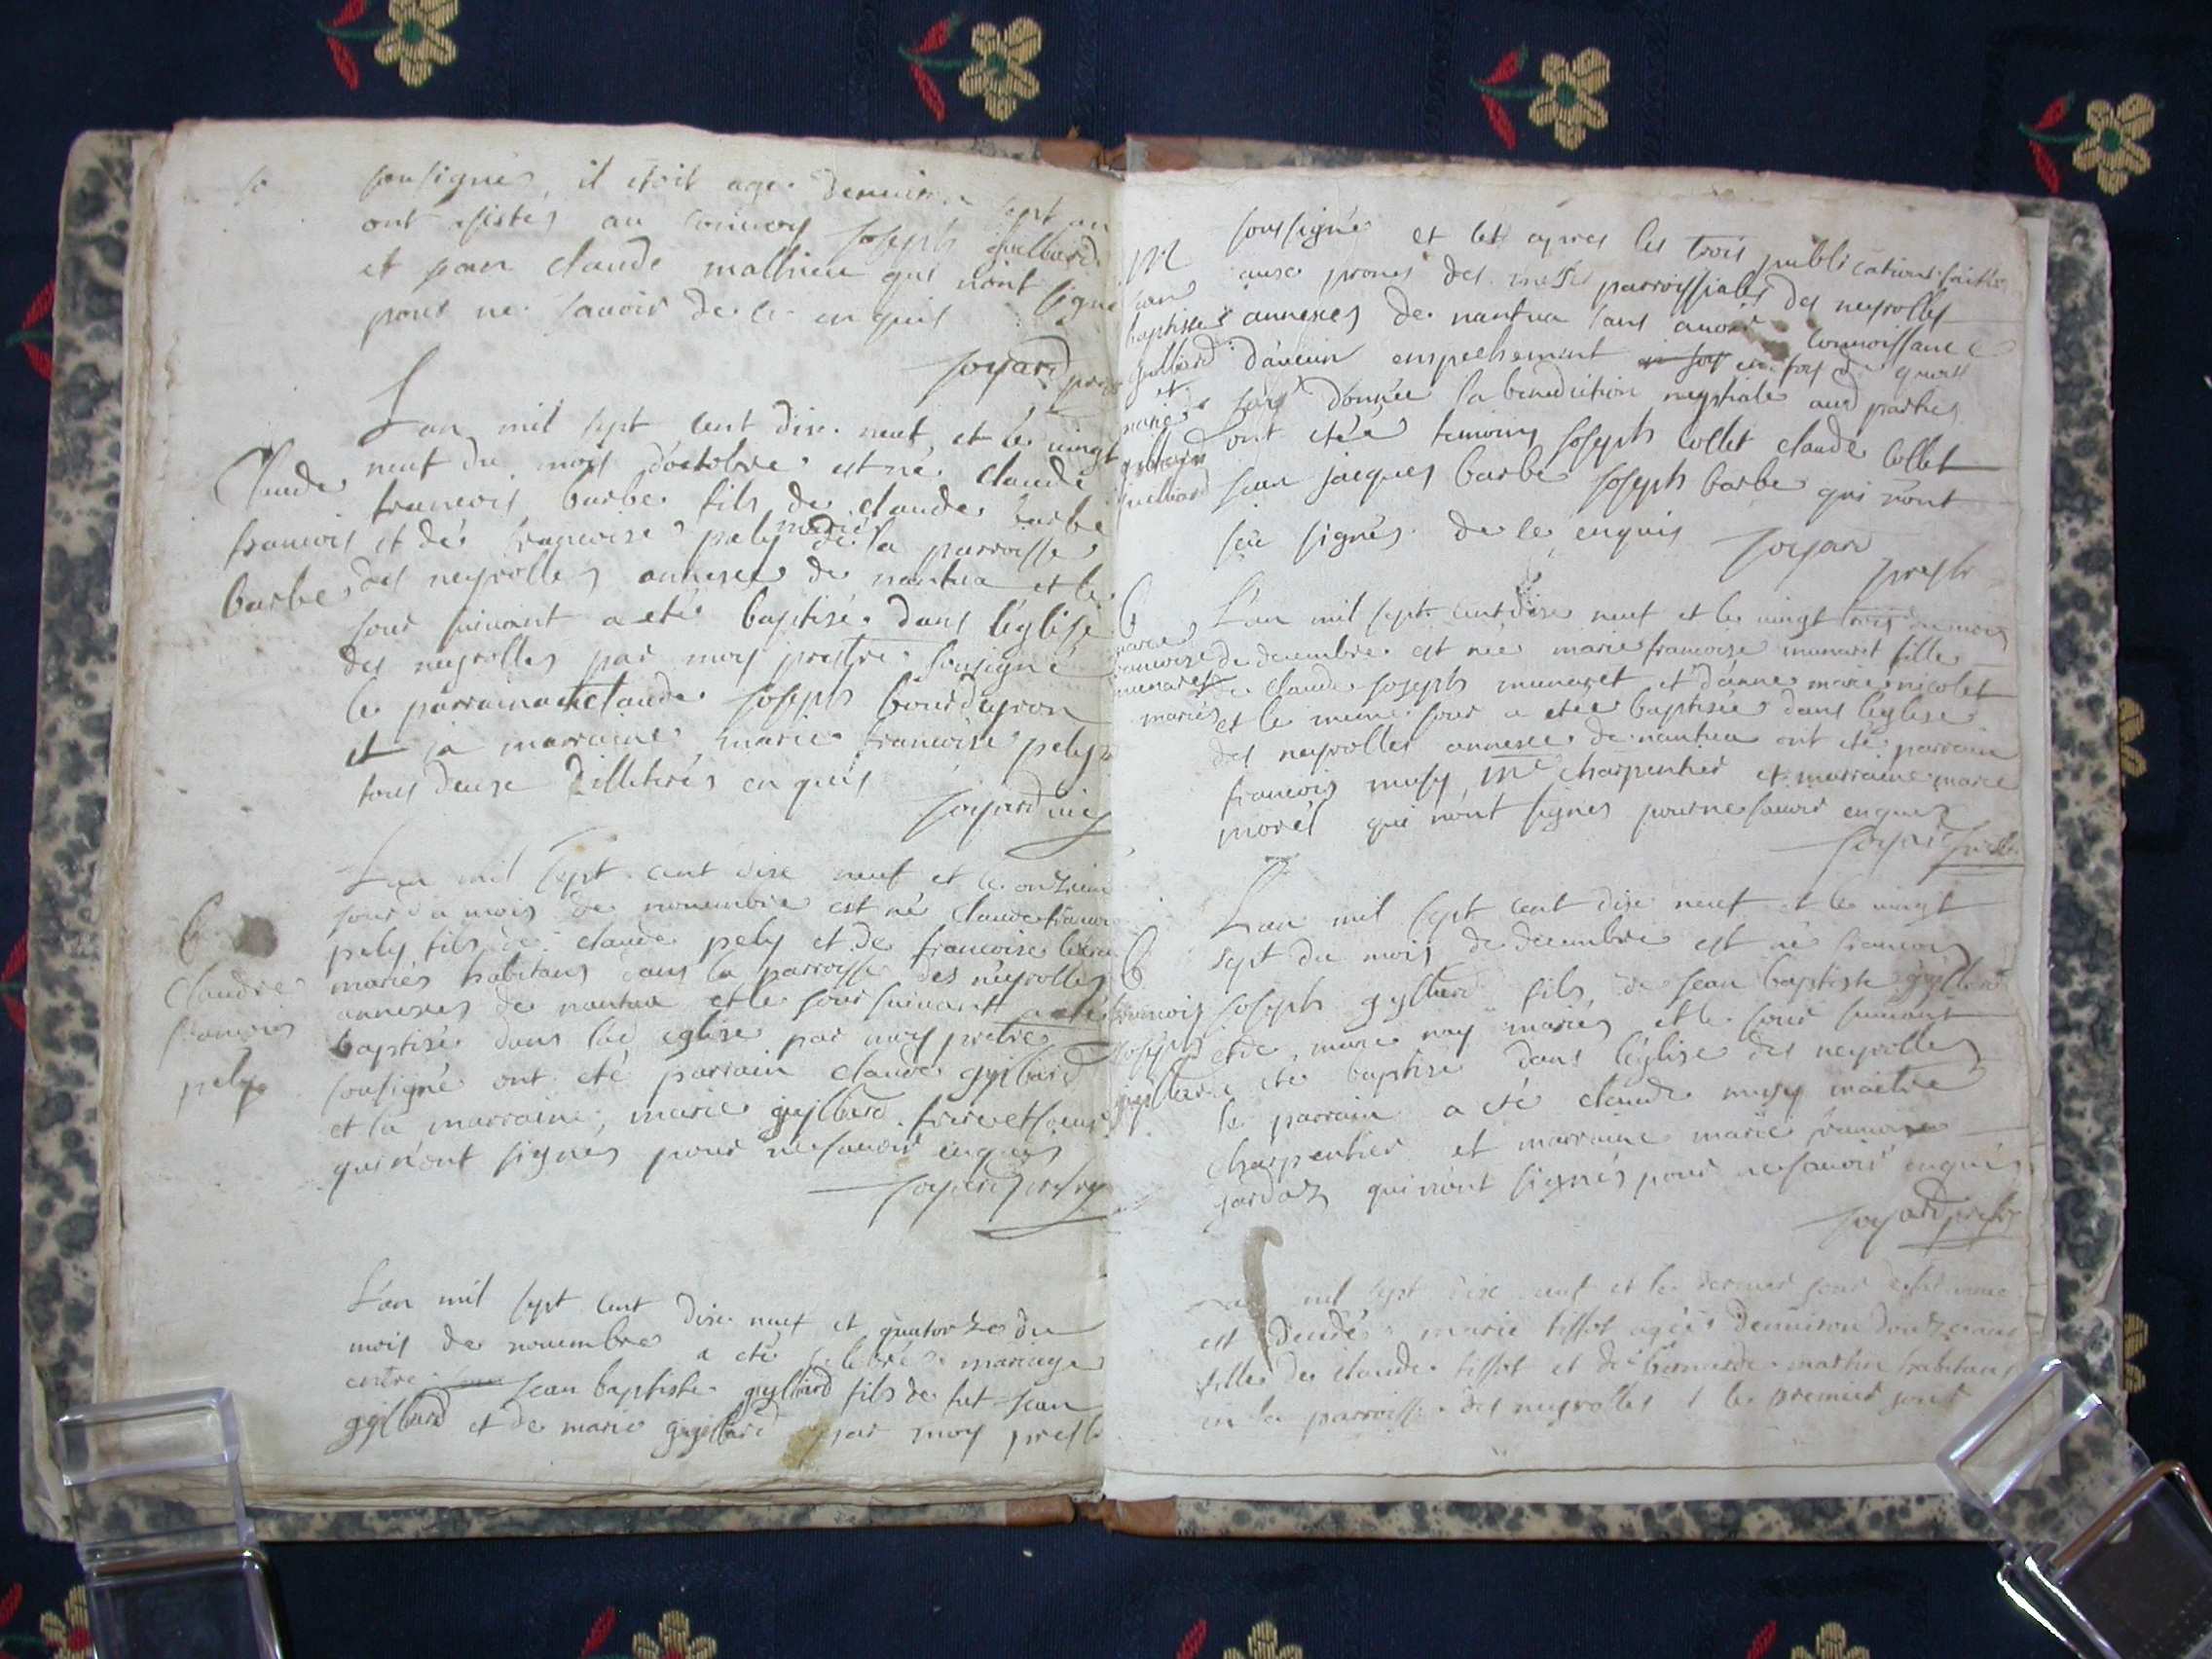 sousigné, il étoit agé denviron sept an
ont assistés au convoy Joseph guilliard
et jean claude mathieu qui n'ont signé
pour ne savoir de ce enquis
Joyard
L'an mil sept cent dixe neuf et le vingt
neuf du mois d'octobre est né claude
francois barbe fils de claude barbe
et de francoise pely mariés de la parroisse
des neyrolles annexe de nantua et le
jour suivant a eté baptisé dans l'église
des neyrolles par moy prestre sousigné
le parrain a eté claude Joseph bourdeyron
et la marraine marie francoise pely
tous deuxe illiterés enquis
Joyard
Claude
francois
barbe
L'an mil sept cent dixe neuf et le onzieme
jour du mois de novembre est né claude francois
pely fils de claude pely et de francoise
mariés habitans dans la parroisse des neyrolles
annexes de nantua et le jour suivant a eté
baptisé dans lad eglise par moy pretre
sousigné ont eté parrain claude gylliard
et la marraine, marie gylliard frere et soeur
qui n'ont signés pour ne savoir enquis
Joyard prestre
B
Claude
francois
pely
L'an mil sept cent dixe neuf et quatorze du
mois de novembre a eté celebré mariage
entre jean baptiste gylliard fils de fut jean
gylliard et de marie gylliard par moy prestre
soussigné et cet apres les trois publications faites
auxe prones des messes parroissiales des neyrolles
annexes de nantua sans avoir connoissance
d'aucun empechement en foy de quoy
j'ay donnée la benediction nuptiale aud parties
ont etéé temoins Joseph collet claude collet
jean jacques barbe Joseph barbe qui n'ont
sçu signés de ce enquis Joyard
prestre
M
jean
baptiste
guilliard
et
marie
guilliard
L'an mil sept cent dixe neuf et le vingt trois du mois
de decembre est née marie francoise munaret fille
de claude Joseph munaret et d'anne marie nicolet
mariés et le meme jour a etéé baptisée dans l'eglise
des neyrolles annexe de nantua ont eté parrain
francois musy, me charpentier et marraine marie
morel qui n'ont signés pour ne savoir enquis
Joyard prestre
B
marie
francoise
munaret
L'an mil sept cent dixe neuf et le vingt
sept du mois de decembre est né francois
Joseph gylliard fils de jean baptiste gylliard
et de marie nay mariés et le jour suivant
a eté baptisé dans l'église des neyrolles
le parrain a eté claude musy maitre
charpentier et marraine marie francoise
jardaz qui n'ont signés pour ne savoir enquis
Joyard prestre
B
francois
Joseph
gylliard
mil sept dixe neuf et le dernier jour
est decedé marie tissot agée denviron douze ans
fille de claude tissot et de bernarde martin habitans
en la parroisse des neyrolles et le premier jour